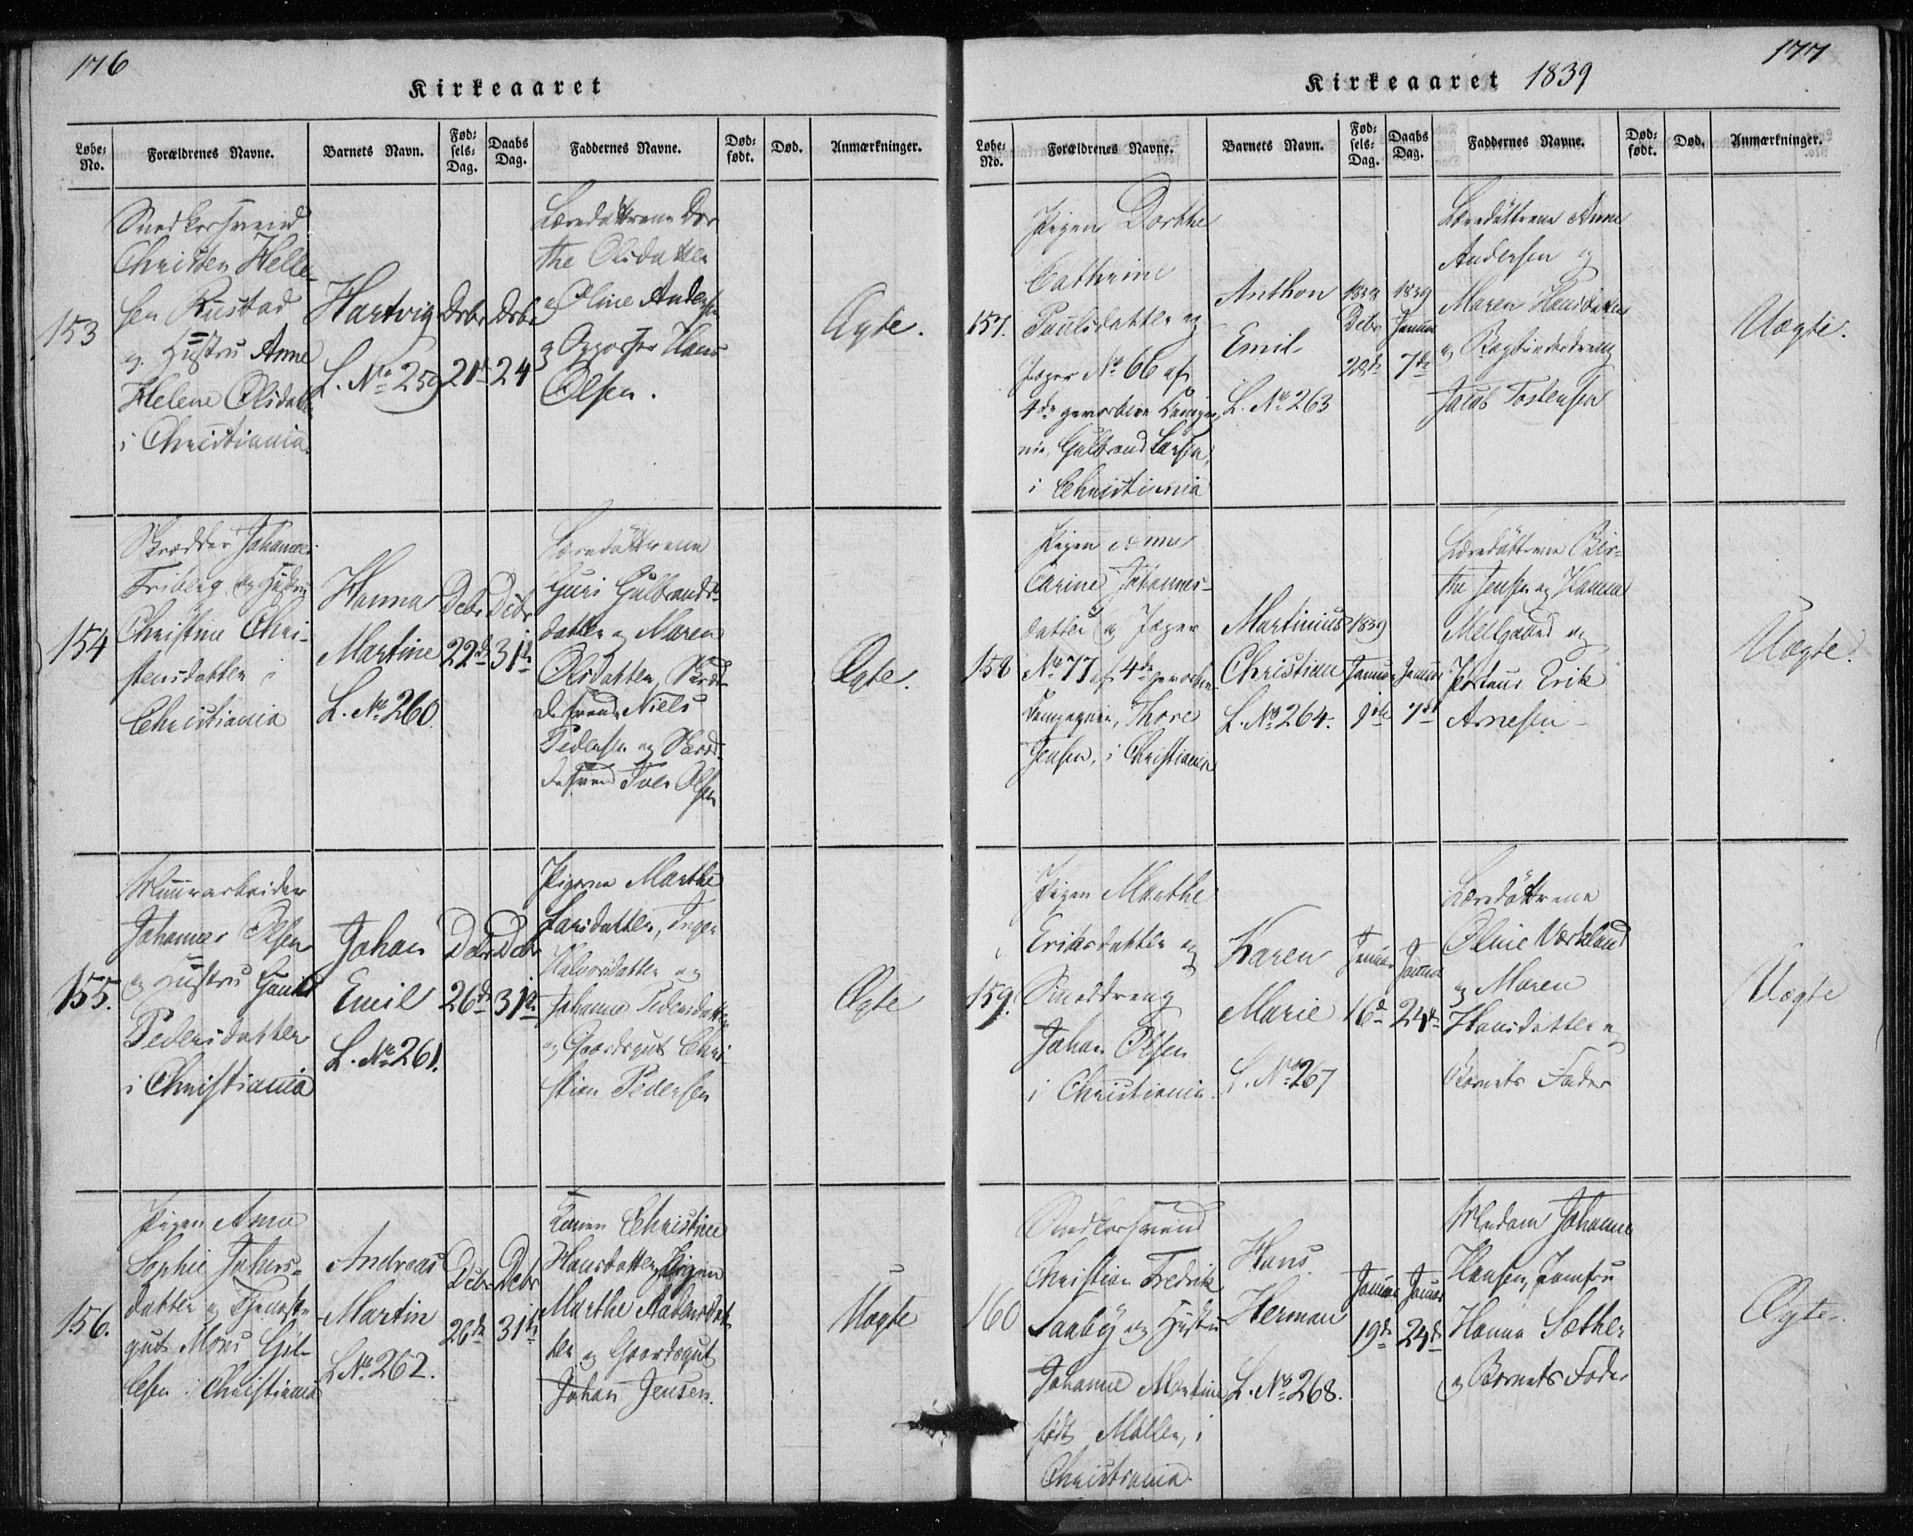 176
Kirkeaaret
Løbe-No. Forældrenes Navne. Barnets Navn. Fødsels-Dag. Daabs Dag. Faddernes Navne. Dødfødt. Død. Anmærkninger.
153
Snedkersvend
Christen Helle-
sen Rustad
og Hustru Anne
Helene Olsdatt
i Christiania.
Hartvig
L. No 259
Dcbr
21d
Dcbr
24
Læredøttrene Dor
the Olsdatter
og Oline Anders
og Hans
Olsen.
Ægte.
154
Skrædder Johannes
Friberg og Hustru
Christine Chri-
stensdatter i
Christiania
Hanna
Martine
L. No 260
Debr
22d
Debr
31te
Læredøttrene
Guri Gulbrands-
datter og Maren
Olsdatter, Skræd-
dersvend Niels
Pedersen og Skræd-
dersvend Olsen
Ægte.
155.
Muurarbeider
Johannes Olsen
og Hustru
Pedersdatter
i Christiania
Johan
Emil
L. No 261.
Debr
26d
Debr
31te
Pigerne Marthe
Larsdatter, Inger
Halvorsdatter og
Johanne Pedersdatter
og Gaardsgut Chri-
stian Pedersen
Ægte
156.
Pigen Anne
Sophie Johns-
datter og Tjeneste-
gut Mons Gul-
lesen i Christiania
Andreas
Martin
L No 262.
Debr
26d
Debr
31te
Konen Christine
Hansdatter, Pigen
Marthe
ter og Gaardsgut
Johan Jensen.
Uægte
177
Kirkeaaret 1839
Løbe-No. Forældrenes Navne. Barnets Navn. Fødsels-Dag. Daabs Dag. Faddernes Navne. Dødfødt. Død. Anmærkninger.
157.
Pigen Dorthe
Cathrine
Paulsdatter og
Jæger No 66 af
4de gevorbne Compag-
nie, Gulbrand Larsen,
i Christiania
Anthon
Emil
L. No 263
Debr
28de
1839
Januar
7de
Læredøttrene Anne
Andersen og
Maren Hansdatter
og Bogbinderdreng
Jacob Tostensen
Uægte.
158
Pigen Anne
Carine Johannes-
datter og Jæger
No 77 af 4de gevorbne
Compagnie, Thore
Jensen, i Christiania
Martinius
Christian
L. No 264.
1839
Januar
Januar
7de
Læredøttrene Bir-
the Jensen og Hanna
Mellgaard og
Erik
Arnesen
Uægte.
159.
Pigen Marthe
Eriksdatter og
Smeddreng
Johan Olsen
i Christiania.
Karen
Marie
L. No 267
Januar
16d
Januar
24de
Læredøttrene
Oline
og Maren
Hansdatter og
Barnets Fader
Uægte
160
Snedkersvend
Christian Fredrik
Saaby og Hustru
Johanne Martine
født Møller, i
Christiania.
Hans
Herman
L. No 268.
Januar
19de
Januar
24d
Madam Johanne
Hansen, Jomfru
Hanna Sæther
og Barnets Fader
Ægte.